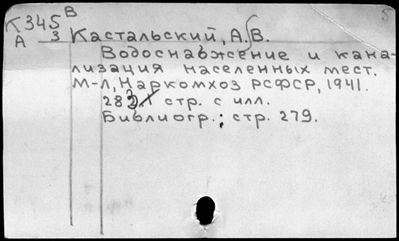 К345 В
А 3 Кастальский, А. В.
Водоснабжение и кана-
лизация населенных мест.
М-Л, Наркомхоз РСФСР, 1941.
282 стр. с илл.
Библиогр.: стр. 279.